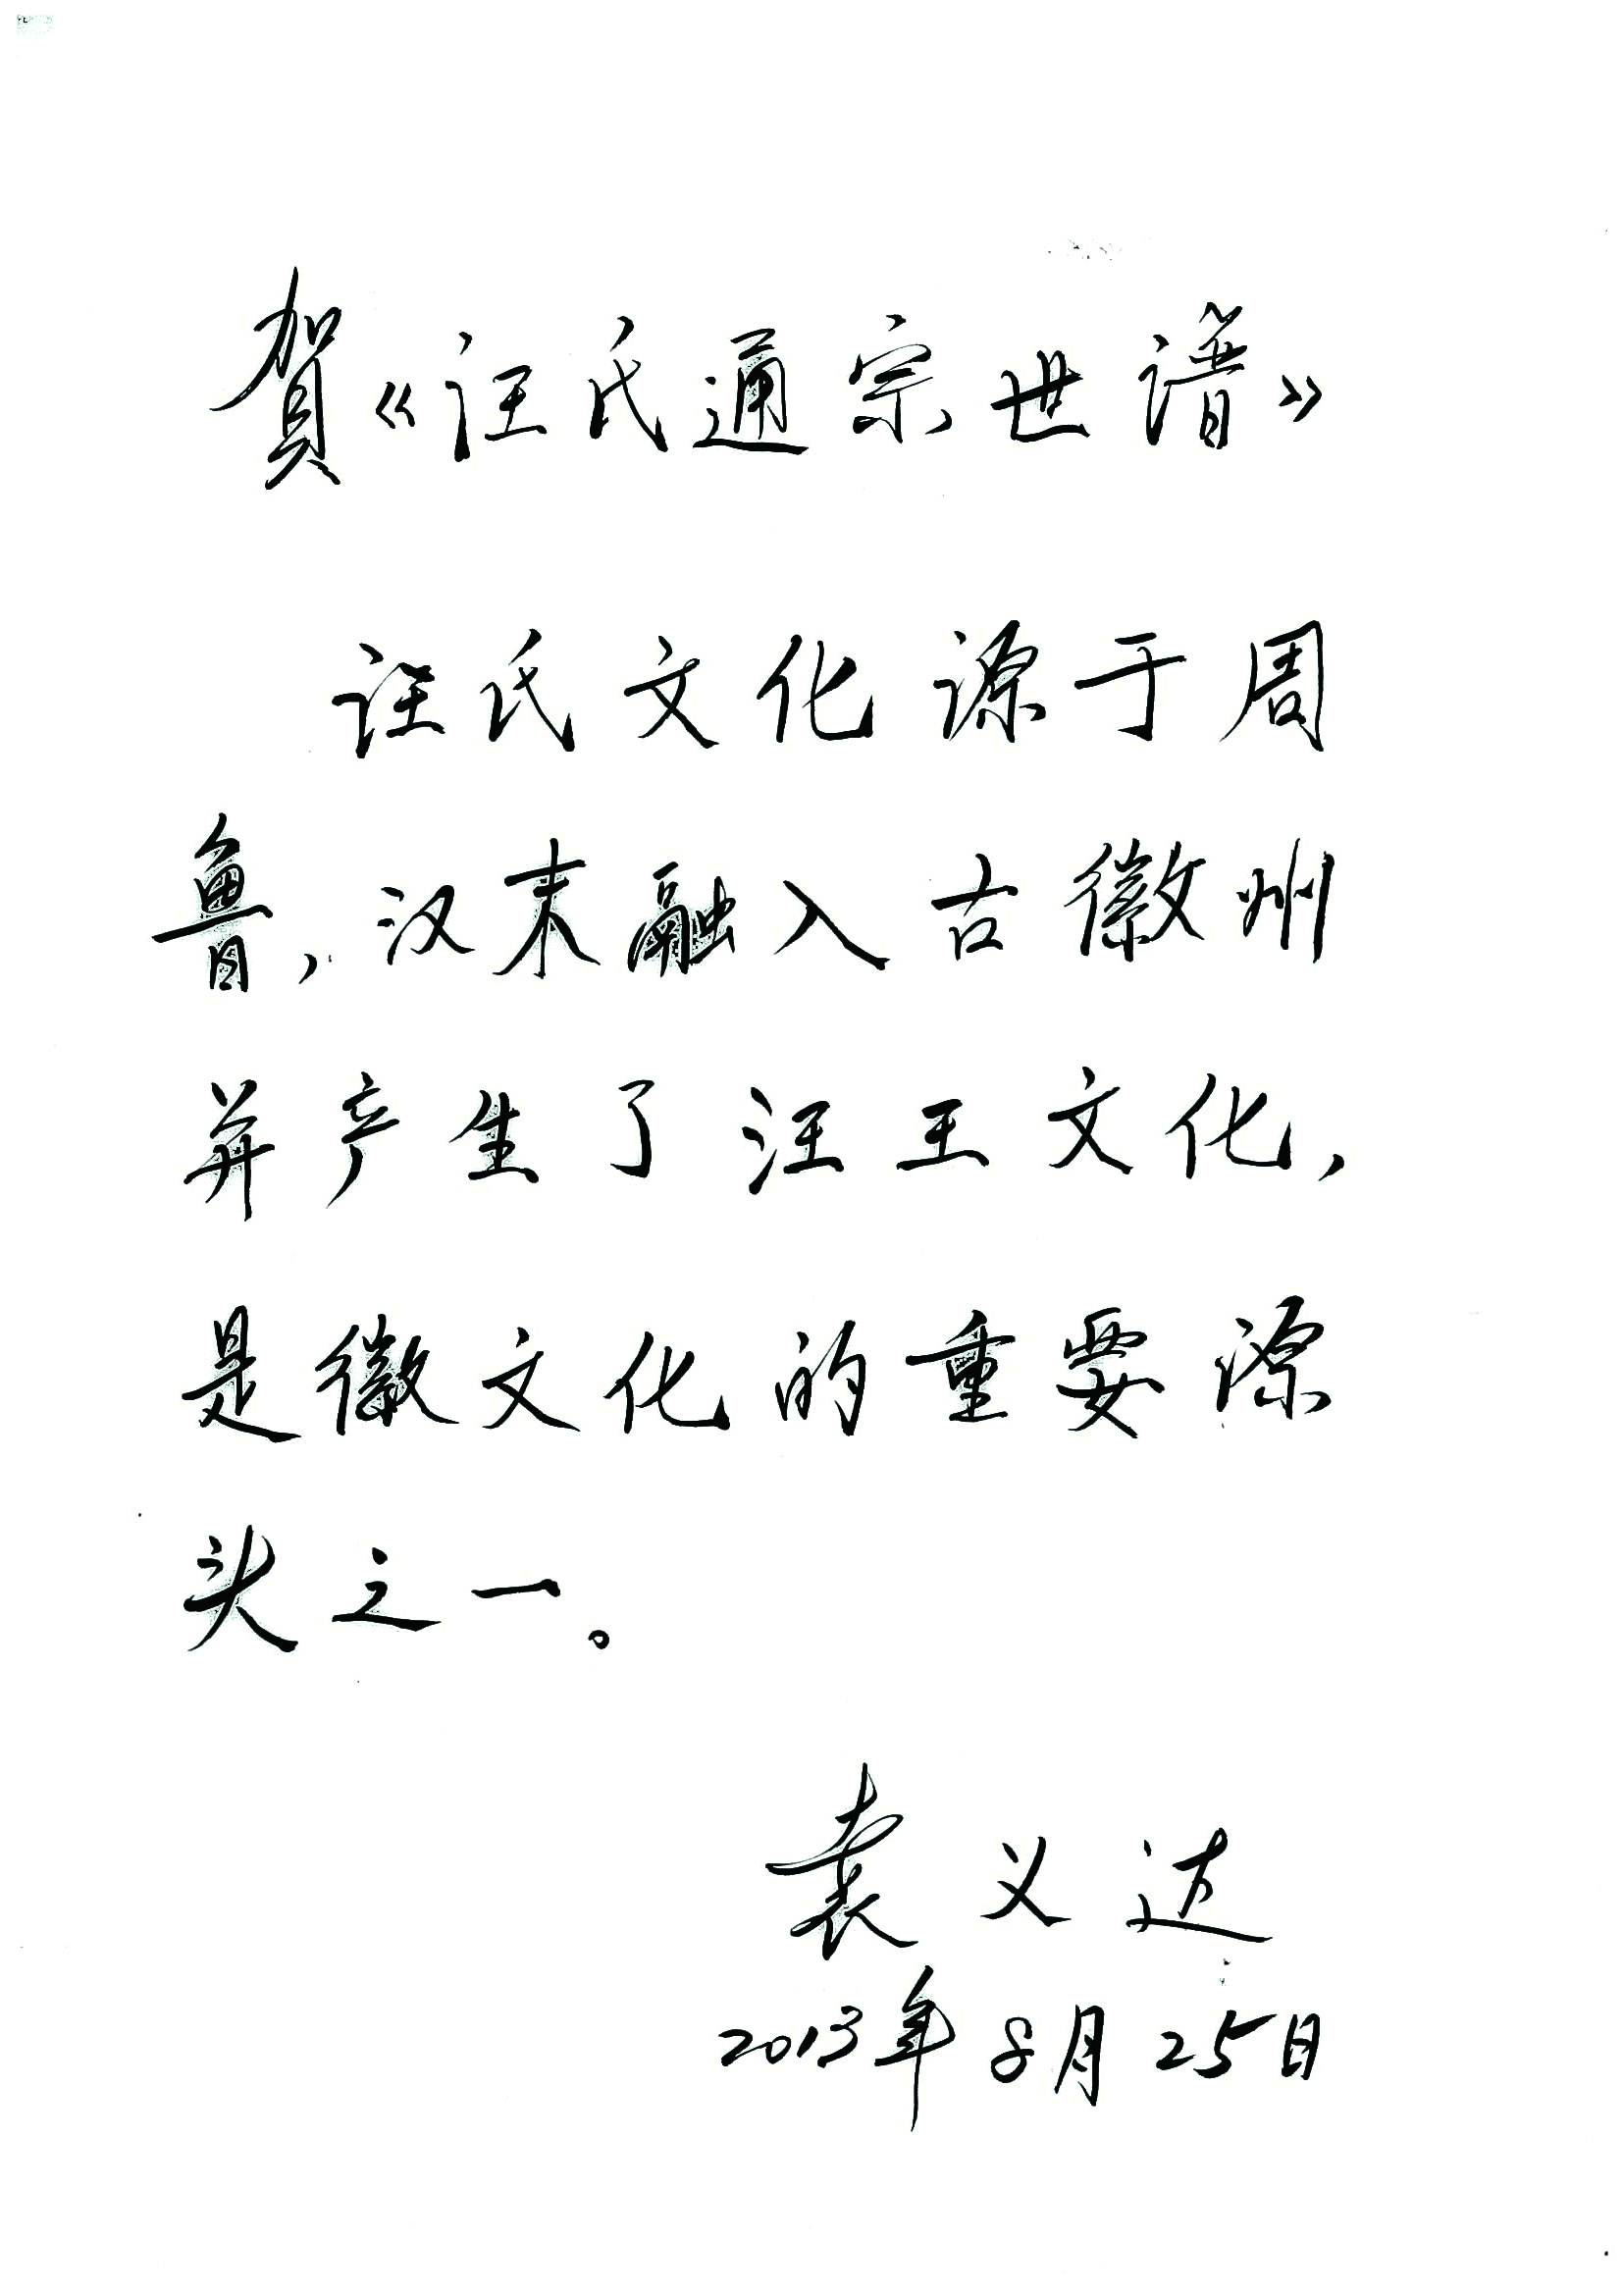 賀《汪氏通宗世谱》
汪氏文化源于周
鲁,汉末融入古徽州
并产生了汪王文化,
是徽文化的重要源
头之一。
袁义达
2013年8月25日